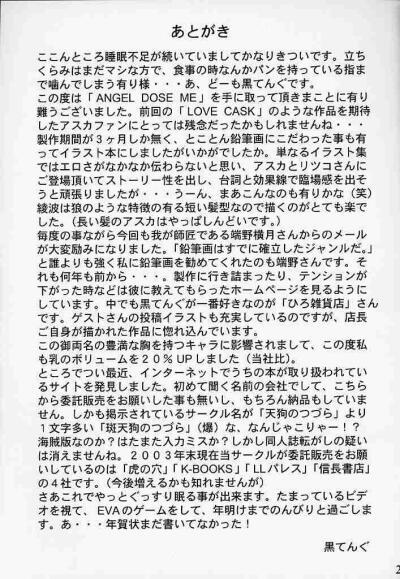 あとがき
ここんところ睡眠不足が続いていましてかなりきついです。立ち
くらみはまだマシな方で、食事の時なんかパンを持っている指ま
で噛んでしまう有り様・・・あ、どーも黒てんぐです。
この度は「ANGEL DOSE ME」を手に取って頂きまことに有り
難うございました。前回の「LOVE CASK」のような作品を期待
したアスカファンにとっては残念だったかもしれませんね・・・
製作期間が3ヶ月しか無く、とことん鉛筆画にこだわった事も有
ってイラスト本にしましたがいかがでしたか。単なるイラスト集
ではエロさがなかなか伝わらないと思い、アスカとリツコさんに
ご登場頂いてストーリー性を出し、台詞と効果線で臨場感を出そ
うと頑張りましたが・・・うーん、まあこんなのも有りかな(笑)
綾波は狼のような特徴の有る短い髪型なので描くのがとても楽で
した。(長い髪のアスカはやっぱしんどいです。)
毎度の事ながら今回も我が師匠である端野横月さんからのメール
が大変励みになりました。「鉛筆画はすでに確立したジャンルだ。」
と誰よりも強く私に鉛筆画を勧めてくれたのも端野さんです。そ
れも何年も前から・・・。製作に行き詰まったり、テンションが
下がった時などは彼に教えてもらったホームページを見るように
しています。中でも黒てんぐが一番好きなのが「ひろ雑貨店」さん
です。ゲストさんの投稿イラストも充実しているのですが、店長
ご自身が描かれた作品に惚れ込んでいます。
この御両名の豊満な胸を持つキャラに影響されまして、この度私
も乳のボリュームを20%UPしました(当社比)。
ところでつい最近、インターネットでうちの本が取り扱われてい
るサイトを発見しました。初めて聞く名前の会社でして、こちら
から委託販売をお願いした事も無いし、もちろん納品もしていま
せん。しかも掲示されているサークル名が「天狗のつづら」より
1文字多い「斑天狗のつづら」(爆)な、なんじゃこりゃー!?
海賊版なのか?はたまた入力ミスか?しかし同人誌転がしの疑い
は消えませんね。2003年末現在当サークルが委託販売をお願
いしているのは「虎の穴」「K-BOOKS」「LLパレス」「信長書店」
の4社です。(今後増えるかも知れませんが)
さあこれでやっとぐっすり眠る事が出来ます。たまっているビデ
オを視て、EVAのゲームをして、年明けまでのんびりと過ごしま
す。あ・・・年賀状まだ書いてなかった!
黒てんぐ
2